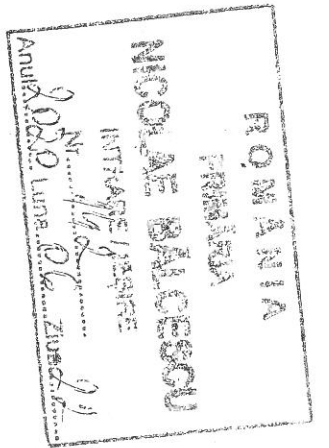 ROMANIA
PRIMARIA
NICOLAE BALCESCU
INTRARE / IESIRE
Nr.
Anul 2020 Luna 06 Ziua